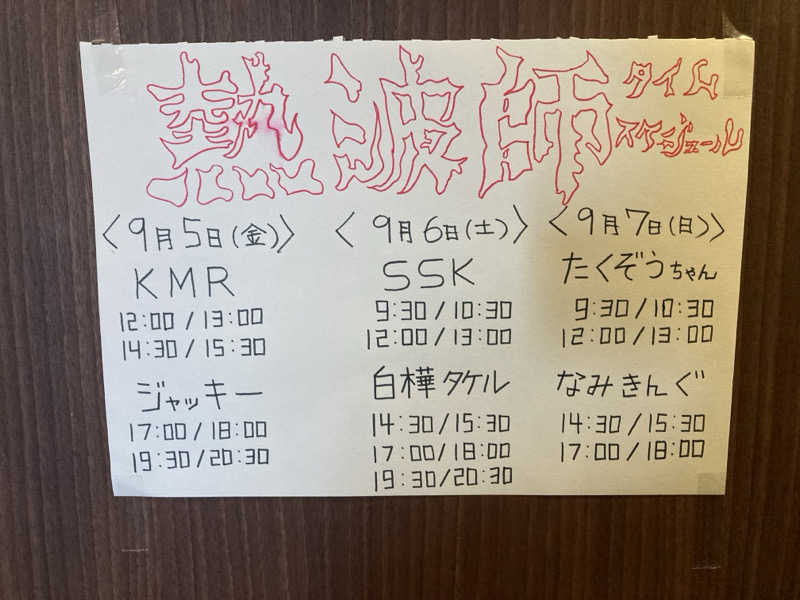 熱波師
タイム
スケジュール
〈9月5日(金)〉
KMR
12:00/13:00
14:30/15:30
ジャッキー
17:00/18:00
19:30/20:30
〈9月6日(土)〉
SSK
9:30/10:30
12:00/13:00
白樺タケル
14:30/15:30
17:00/18:00
19:30/20:30
〈9月7日(日)〉
たくぞうちゃん
9:30/10:30
12:00/13:00
なみきんぐ
14:30/15:30
17:00/18:00